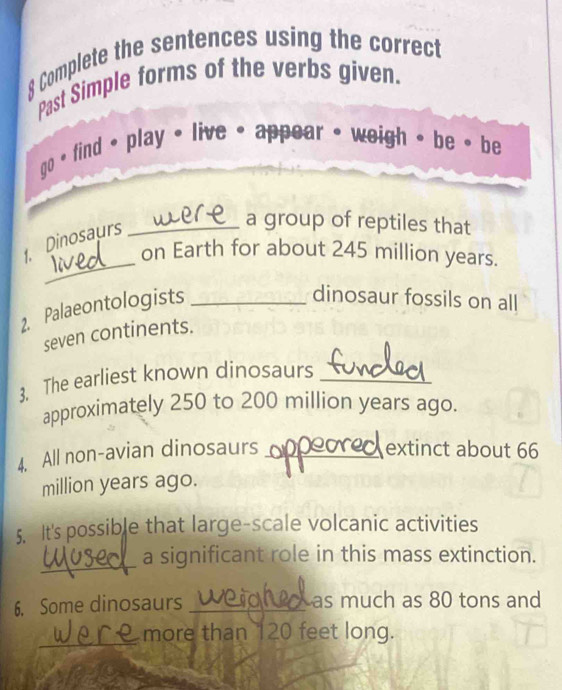 8 Complete the sentences using the correct
Past Simple forms of the verbs given.
go • find • play • live • appear • weigh • be • be
1. Dinosaurs were a group of reptiles that
lived on Earth for about 245 million years.
2. Palaeontologists ________ dinosaur fossils on all
seven continents.
3. The earliest known dinosaurs funded
approximately 250 to 200 million years ago.
4. All non-avian dinosaurs appeared extinct about 66
million years ago.
5. It's possible that large-scale volcanic activities
a significant role in this mass extinction.
6. Some dinosaurs weighed as much as 80 tons and
were more than 120 feet long.